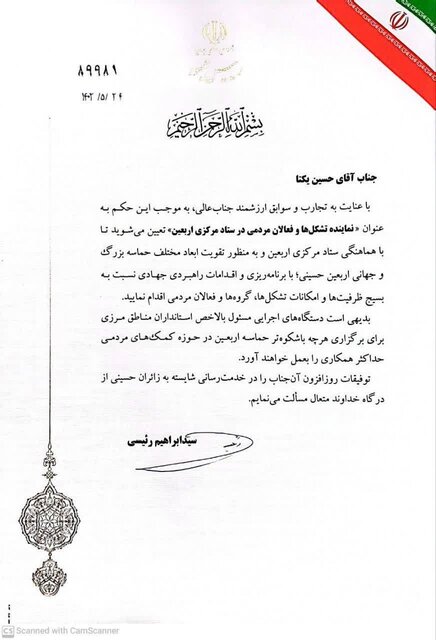 ۸۹۹۸۱
۱۴۰۲/۵/۲۴
بسم الله الرحمن الرحیم
جناب آقای حسین یکتا
با عنایت به تجارب و سوابق ارزشمند جناب‌عالی، به موجب این حکم به
عنوان «نماینده تشکل‌ها و فعالان مردمی در ستاد مرکزی اربعین» تعیین می‌شوید تا
با هماهنگی ستاد مرکزی اربعین و به منظور تقویت ابعاد مختلف حماسه بزرگ
و جهانی اربعین حسینی؛ با برنامه‌ریزی و اقدامات راهبردی جهادی نسبت به
بسیج ظرفیت‌ها و امکانات تشکل‌ها، گروه‌ها و فعالان مردمی اقدام نمایید.
بدیهی است دستگاه‌های اجرایی مسئول بالاخص استانداران مناطق مرزی
برای برگزاری هرچه باشکوه‌تر حماسه اربعین در حوزه کمک‌های مردمی
حداکثر همکاری را بعمل خواهند آورد.
توفیقات روزافزون آن‌جناب را در خدمت‌رسانی شایسته به زائران حسینی از
درگاه خداوند متعال مسألت می‌نمایم.
سیدابراهیم رئیسی
CS Scanned with CamScanner